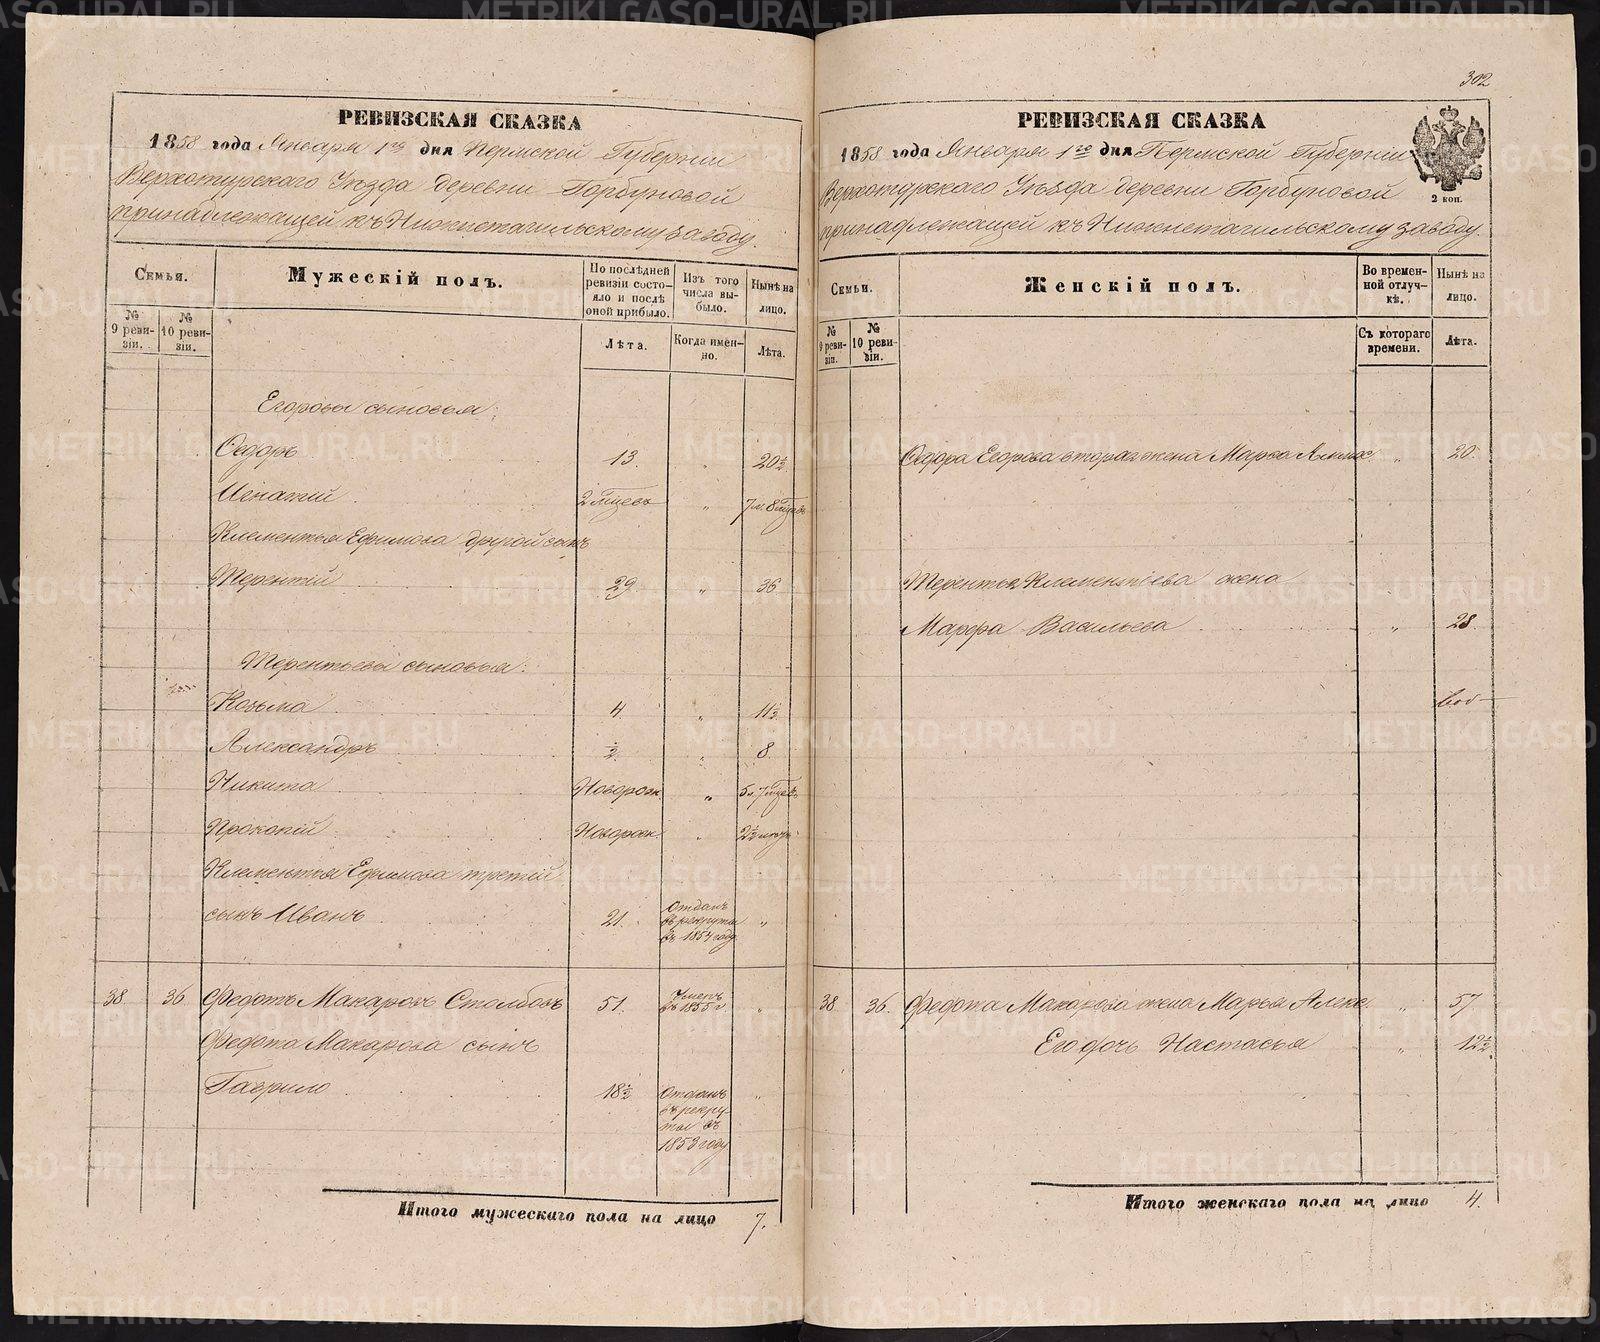 РЕВИЗСКАЯ СКАЗКА
1858 года Января 1го дня Пермской Губернии
Верхотурскаго Уѣзда деревни Горбуновой
принадлежащей къ Нижнетагильскому заводу.
Семьи.
Мужескій полъ.
По послѣдней ревизіи состояло и послѣ оной прибыло.
Изъ того числа выбыло.
Нынѣ на лицо.
№ 9 ревизіи.
№ 10 ревизіи.
Лѣта.
Когда именно.
Лѣта.
Егоровы сыновья:
Ѳедоръ 13. " 20½
Игнатій 2 мѣсев " 7 л. 8 мѣсев
Клементья Ефимова другой сынъ
Терентій 29. " 36
Терентьевы сыновья:
Козьма 4. " 11½
Александръ ½ " 8.
Никита Новорож " 5 л. 7 мѣсев
Прокопій Новорож " 2½
Клементья Ефимова третій
сынъ Иванъ 21. Отданъ въ рекруты въ 1854 году "
38. 36. Федотъ Макаровъ Столбовъ 51. Умеръ въ 1855 г "
Федота Макарова сынъ
Гаврило 18½ Отданъ въ рекруты въ 1853 году "
Итого мужескаго пола на лицо 7.
302
РЕВИЗСКАЯ СКАЗКА
1858 года Января 1го дня Пермской Губерніи
Верхотурскаго Уѣзда деревни Горбуновой
принадлежащей къ Нижнетагильскому заводу.
2 коп.
Семьи.
Женскій полъ.
Во временной отлучкѣ.
Нынѣ на лицо.
№ 9 ревизіи.
№ 10 ревизіи.
Съ котораго времени.
Лѣта.
Ѳедора Егорова вторая жена Марѳа " 20.
Терентья Клементьева жена
Марфа Васильева " 28.
38 36. Федота Макарова жена Марья Алекс. " 57
Его дочь Настасья " 12½
Итого женскаго пола на лицо 4.
METRIKI.GASO-URAL.RU